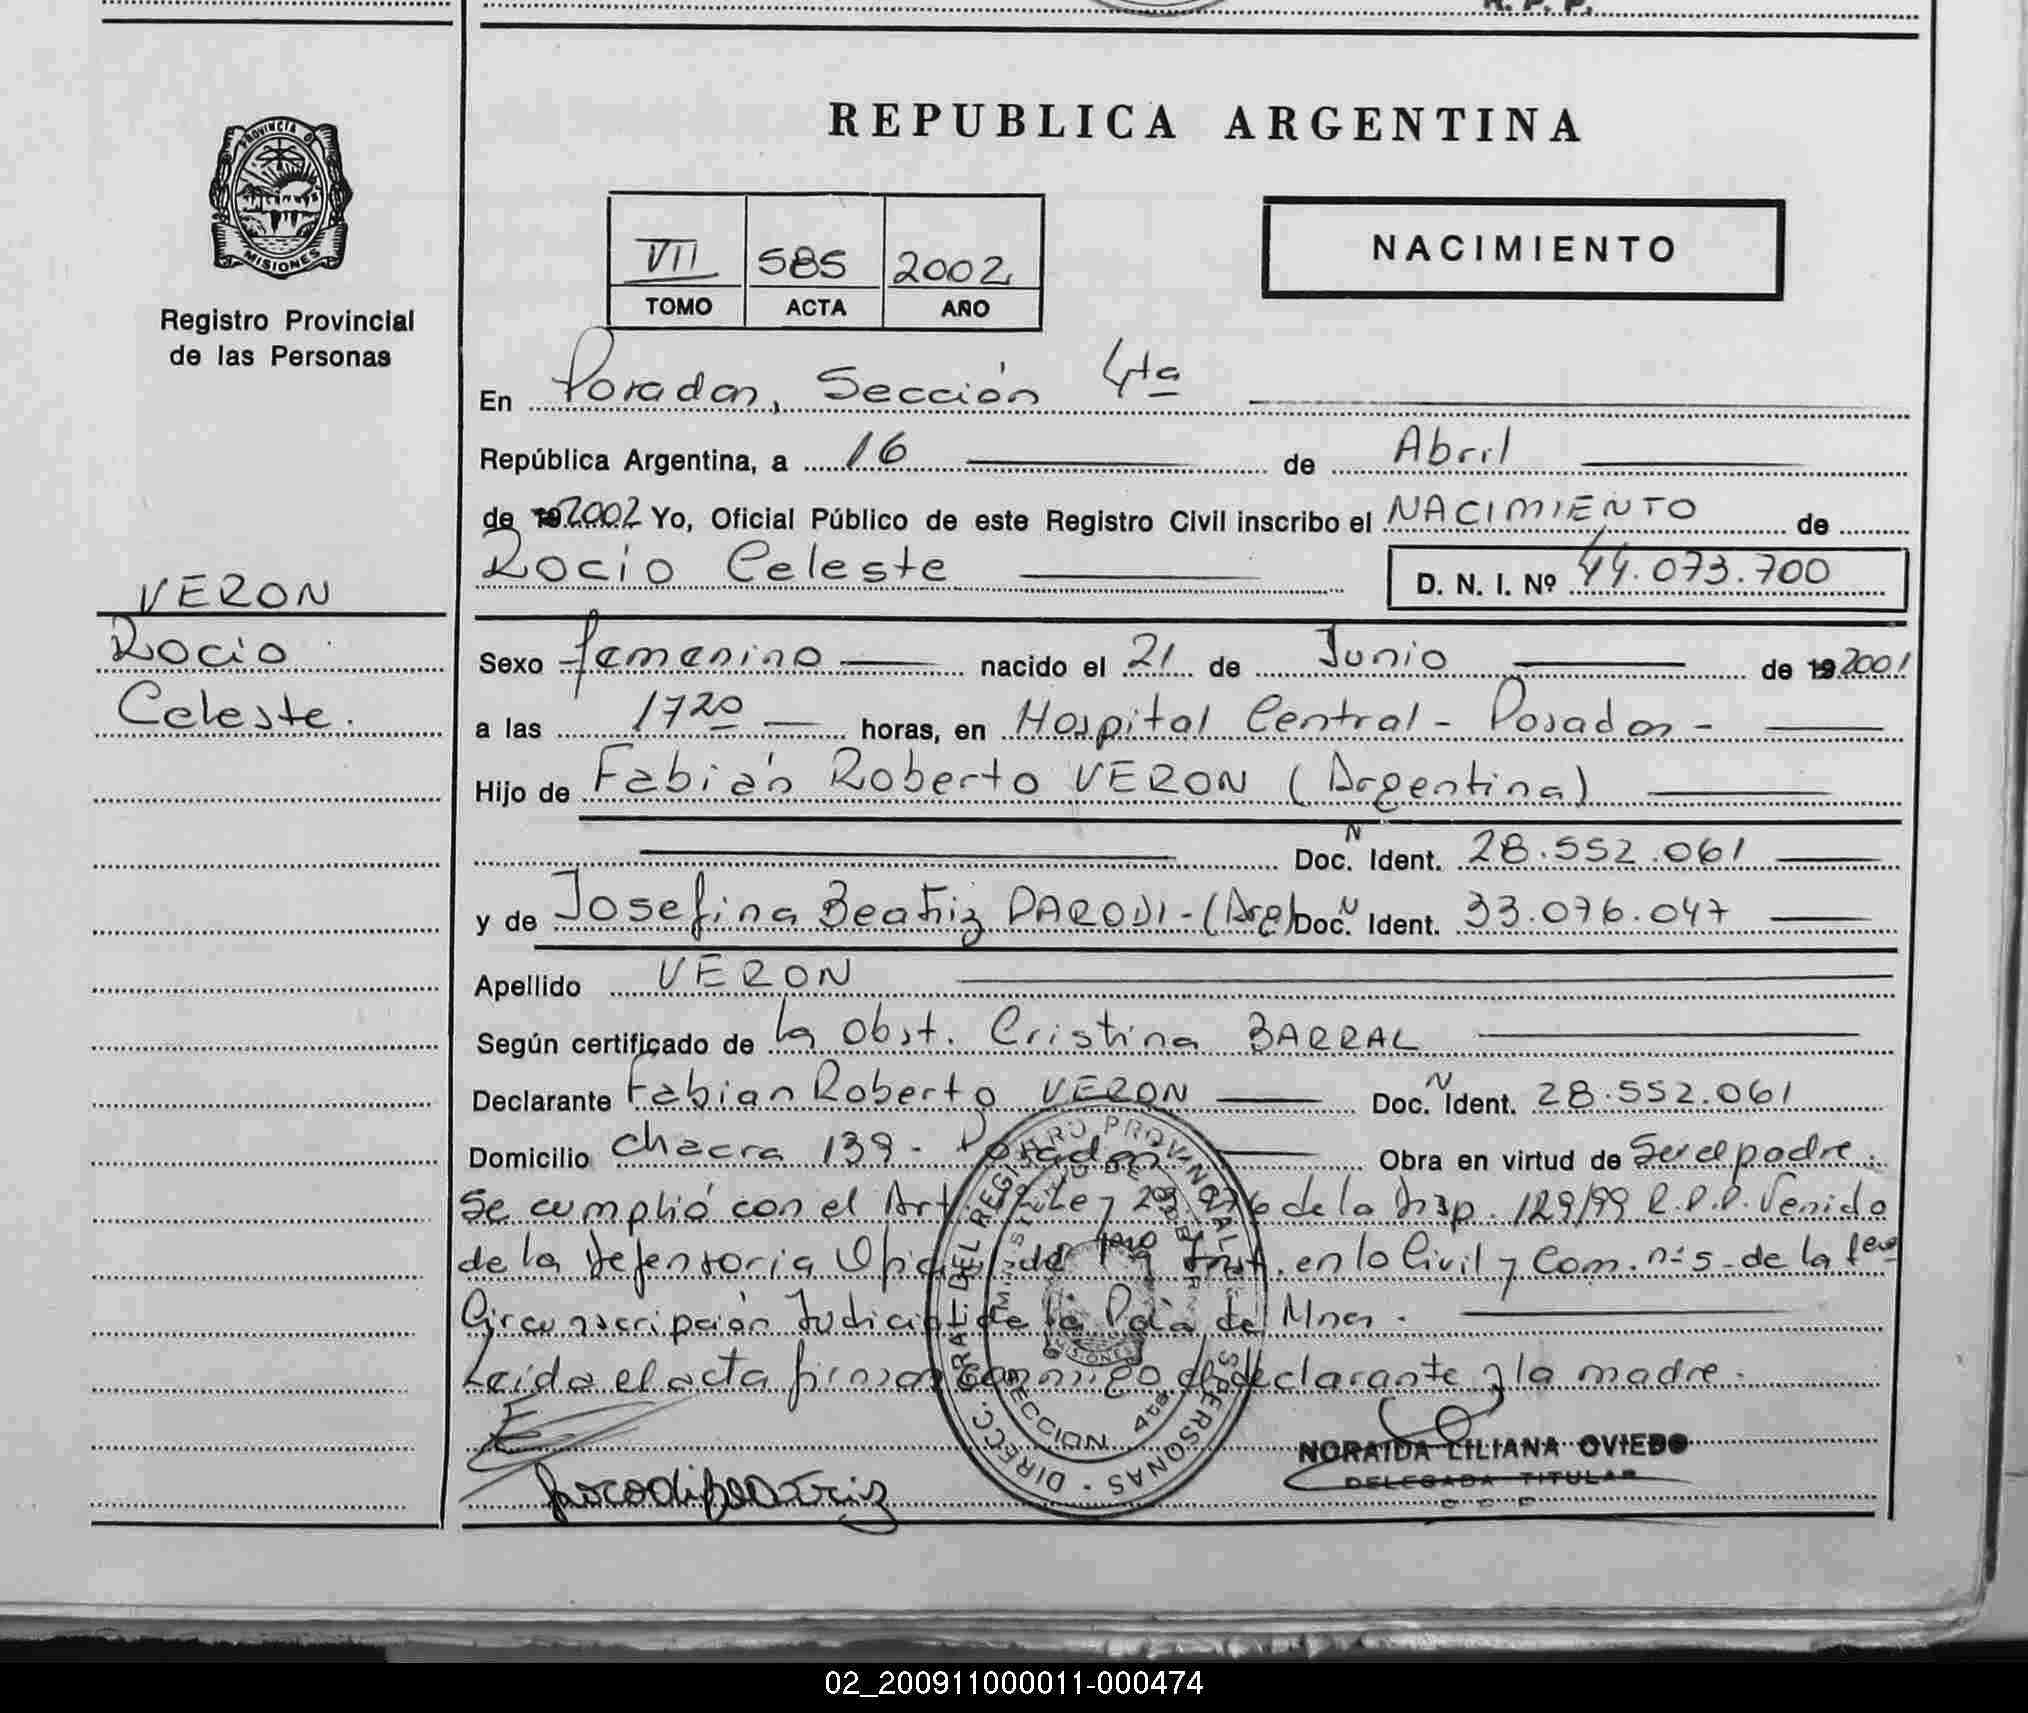 R. P. P.
REPUBLICA ARGENTINA
PROVINCIA DE
MISIONES
Registro Provincial
de las Personas
VII 585 2002
TOMO ACTA AÑO
NACIMIENTO
En Posadas, Sección 4ta
República Argentina, a 16 de Abril
de 19 2002 Yo, Oficial Público de este Registro Civil inscribo el NACIMIENTO de
Rocio Celeste D. N. I. Nº 44.073.700
VERON
Rocio
Celeste.
Sexo femenino nacido el 21 de Junio de 19 2001
a las 1720 horas, en Hospital Central - Posadas -
Hijo de Fabián Roberto VERON (Argentina)
Doc. N Ident. 28.552.061
y de Josefina Beatriz PARODI - (Arg) Doc. N Ident. 33.076.047
Apellido VERON
Según certificado de la Obst. Cristina BARRAL
Declarante Fabian Roberto VERON Doc. N Ident. 28.552.061
Domicilio Chacra 139 - Posadas Obra en virtud de Ser el padre.
Se cumplió con el Art. Ley de la Disp. 129/99 R.P.P. Venido
de la Defensoria Oficial de 1ra Inst. en lo Civil y Com. nº 5 - de la 1era
Circunscripción Judicial de la Pcia de Mnes.
Leída el acta firman conmigo el declarante y la madre.
DIREC. GRAL. DEL REGISTRO PROVINCIAL DE LAS PERSONAS
MISIONES
SECCION 4ta
NORAIDA LILIANA OVIEDO
DELEGADA TITULAR
02_200911000011-000474